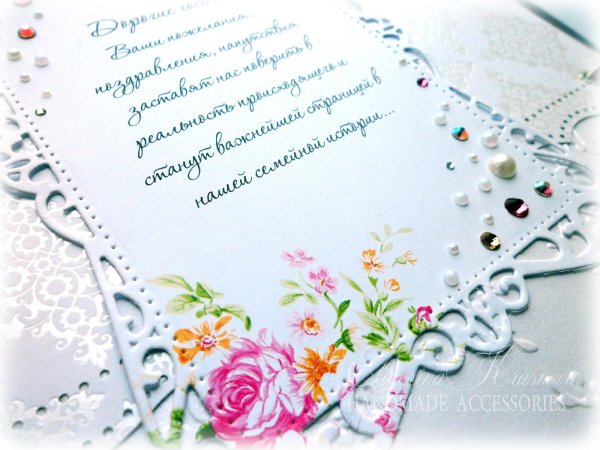 Дорогие гос
Ваши пожелания,
поздравления, напутствия
заставят нас поверить в
реальность происходящего и
станут важнейшей страницей в
нашей семейной истории...
Krasnova
HANDMADE ACCESSORIES